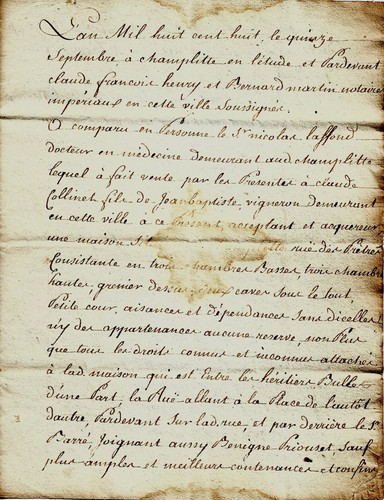 L'an Mil huit cent huit, le quinze
Septembre à champlitte en l'étude et Pardevant
claude françois henry et Bernard martin notaires
imperiaux en cette ville Soussignés.
O comparu en Personne le Sr nicolas laffond
docteur en médecine demeurant aud champlitte
lequel à fait vente par les Presentes à claude
Collinet fils de Jeanbaptiste, vigneron demeurant
en cette ville à ce Present, acceptant et acquereur
une maison ruë des Prêtres
Consistante en trois chambres Basses, trois chambres
hautes, grenier dessus, deux caves sous le tout
Petite cour, aisances et dépendances sans d'icelles
ny des appartenances aucune reserve, non Plus
que tous les droits connus et inconnus attachés
à lad. maison qui est Entre les héritiers Bulle
d'une Part, la Ruë allant à la Place de
d'autre, Pardevant Sur lad. ruë, et par derrière le Sr
Barré, Joignant aussy Benigne Priouset, sauf
plus amples et meilleurs contenances et confins